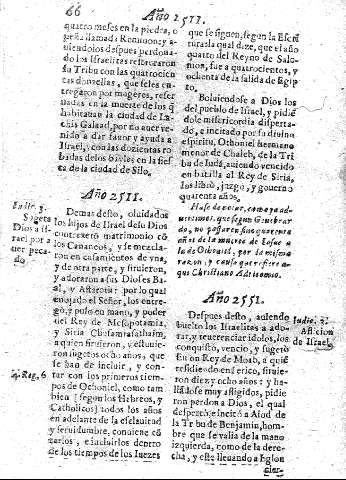 66
Año 2511.
quatro meses en la piedra, o
peña llamada Remmon; y a-
uiendolos despues perdona-
do los Israelitas reforçaron
su Tribu con las quatrocien
tas donzellas, que seles en-
tregaron por mugeres, reser
uadas en la muerte de los q̃
habitauan la ciudad de
Galaad, por no auer ve-
nido a dar fauor y ayuda a
Israel, con las dozientas ro
badas de los bayles en la fies-
ta de la ciudad de Silo.
Año 2511.
Iudic. 3.
Sugeta
Dios a Is
rael por a
uer peca-
do
Demas desto, olvidados
los hijos de Israel de su Dios
contraxerõ matrimonio cõ
los Cananeos, y se mezcla-
ron en casamientos de vna,
y de otra parte, y siruieron,
y adoraron a sus Dioses Ba-
al, y Astarot: por lo qual
enojado el Señor, los entre-
gó, y puso en mano, y poder
del Rey de Mesopotamia,
y Siria
a quien siruieron, y estuuie-
ron sugetos ocho años, que
se han de incluir, y con-
tar con los primeros tiempos
de Othoniel, como tam
bien [segun los Hebreos, y
Catholicos] todos los años
en adelante de la esclauitud
y seruidumbre, conuiene cõ
tarlos, e incluirlos dentro
de los tiempos de los Iuezes
4. Reg. 6.
que se siguen, segun la Escri
tura, la qual dize, que el año
quarto del Reyno de Salo-
mon, fue a quatrocientos, y
ochenta de la salida de Egip
to.
Boluiendose a Dios los
del pueblo de Israel, y pidiẽ
dole misericordia disperta-
do, e incitado por su diuino
espiritu, Othoniel hermano
menor de Chaleb, de la Tri
bu de Iudá, auiendo vencido
en batalla el Rey de Siria,
los libró, jazgó, y gouerno
quarenta años.
Hase de notar, como ya ad-
uertimos, que segun Genebrar
do, no passaron sino quarenta
años de la muerte de Iosue a
la de Othoniel, por la misma
razon, y causa que refiere a-
qui Christiano Adricomio.
Año 2551.
Despues desto, auiendo
buelto los Israelitas a ado-
rar, y reuerenciar idolos, los
conquistó, vencio, y sugetó
Eglon Rey de Moab, a quiẽ
residiendo en Ierico, siruie-
ron diez y ocho años: y ha-
llandose muy afligidos, pidie
ron perdon a Dios, el qual
despertò e incitò a Aiod de
la Tribu de Benjamin, hom-
bre que se valia de la mano
izquierda, como de la dere-
cha, y este llevando a Eglon
Iudic. 3.
Afliccion
de Israel.